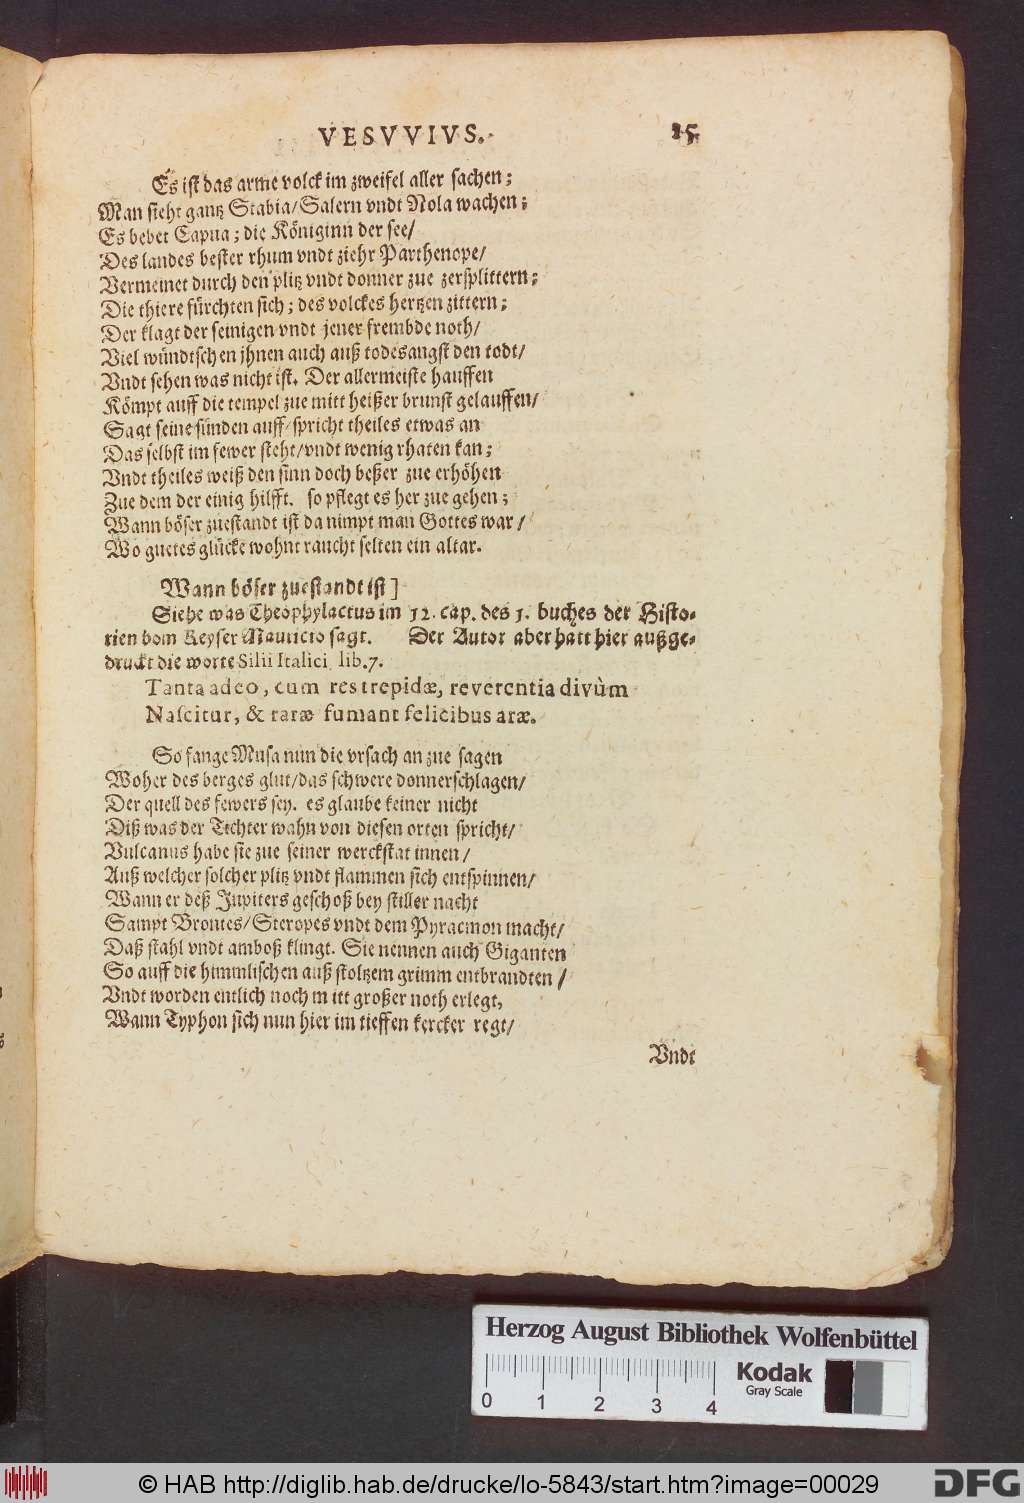 VESVVIVS.
25
Es ist das arme volck im zweifel aller sachen;
Man sieht gantz Stabia/Salern vndt Nola wachen;
Es bebet Capua; die Königinn der see/
Des landes bester rhum vndt ziehr Parthenope/
Vermeinet durch den plitz vndt donner zue zersplittern;
Die thiere fürchten sich; des volckes hertzen zittern;
Der klagt der seinigen vndt jener frembde noth/
Viel wündtschen jhnen auch auß todesangst den todt/
Vndt sehen was nicht ist. Der allermeiste hauffen
Kömpt auff die tempel zue mitt heißer brunst gelauffen/
Sagt seine sünden auff/spricht theiles etwas an
Das selbst im fewer steht/vndt wenig rhaten kan;
Vndt theiles weiß den sinn doch beßer zue erhöhen
Zue dem der einig hilfft. so pflegt es her zue gehen;
Wann böser zuestandt ist da nimpt man Gottes war/
Wo guetes glücke wohnt raucht selten ein altar.
Wann böser zuestandt ist]
Siehe was Theophylactus im 12. cap. des 1. buches der Histo-
rien vom Keyser Mauricio sagt. Der Autor aber hatt hier außge-
druckt die worte Silii Italici lib.7.
Tanta adeo, cum res trepidæ, reverentia divùm
Nascitur, & raræ fumant felicibus aræ.
So fange Musa nun die vrsach an zue sagen
Woher des berges glut/das schwere donnerschlagen/
Der quell des fewers sey. es glaube keiner nicht
Diß was der Tichter wahn von diesen orten spricht/
Vulcanus habe sie zue seiner werckstat innen/
Auß welcher solcher plitz vndt flammen sich entspinnen/
Wann er deß Jupiters geschoß bey stiller nacht
Sampt Brontes/Steropes vndt dem Pyracmon macht/
Daß stahl vndt amboß klingt. Sie nennen auch Giganten
So auff die himmlischen auß stoltzem grimm entbrandten/
Vndt worden entlich noch mitt großer noth erlegt,
Wann Typhon sich nun hier im tieffen kercker regt/
Vndt
Herzog August Bibliothek Wolfenbüttel
0 1 2 3 4
Kodak
Gray Scale
© HAB http://diglib.hab.de/drucke/lo-5843/start.htm?image=00029
DFG